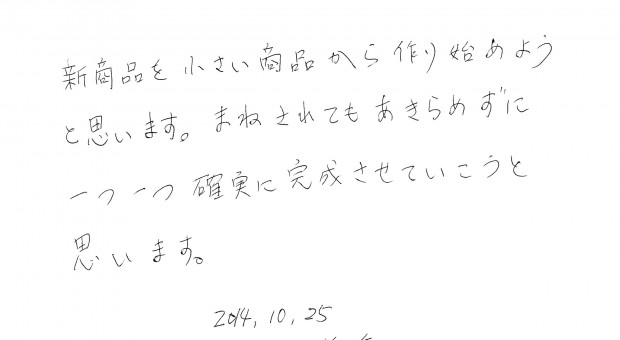 新商品を小さい商品から作り始めよう
と思います。まねされてもあきらめずに
一つ一つ確実に完成させていこうと
思います。
2014,10,25